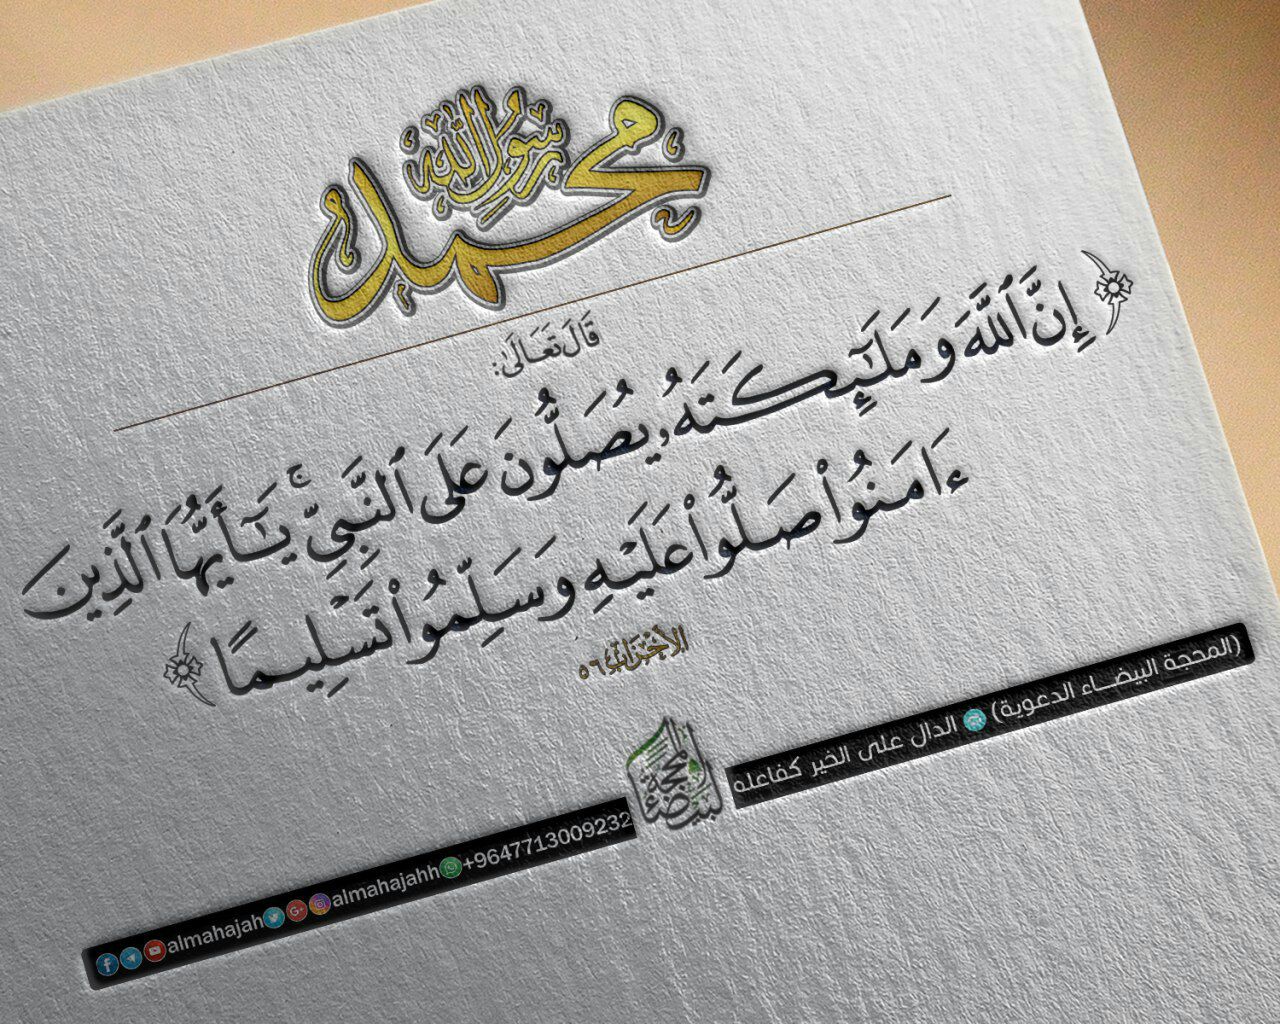 محمد رسول الله
قَالَ تَعَالَىٰ:
﴿إِنَّ ٱللَّهَ وَمَلَـٰٓئِكَتَهُۥ يُصَلُّونَ عَلَى ٱلنَّبِيِّ ۚ يَـٰٓأَيُّهَا ٱلَّذِينَ
ءَامَنُوا۟ صَلُّوا۟ عَلَيْهِ وَسَلِّمُوا۟ تَسْلِيمًا﴾
الأحزاب ٥٦
(المحجة البيضـــاء الدعوية) الدال على الخير كفاعله
المحجة البيضاء
almahajah almahajahh +9647713009232